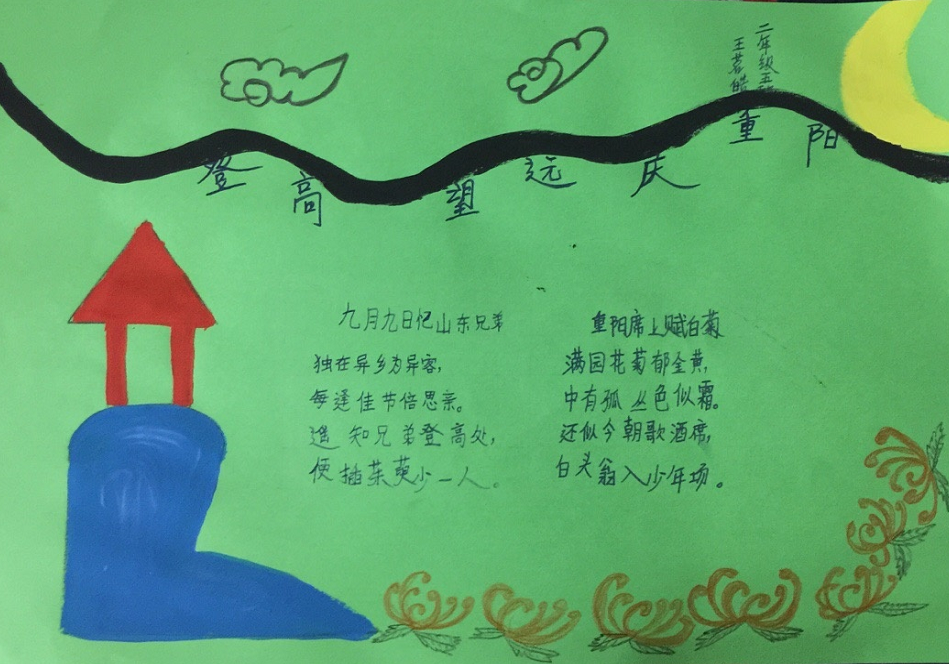 二年级五
王茗皓
登高望远庆重阳
九月九日忆山东兄弟
独在异乡为异客,
每逢佳节倍思亲。
遥知兄弟登高处,
便插茱萸少一人。
重阳席上赋白菊
满园花菊郁金黄,
中有孤丛色似霜。
还似今朝歌酒席,
白头翁入少年场。